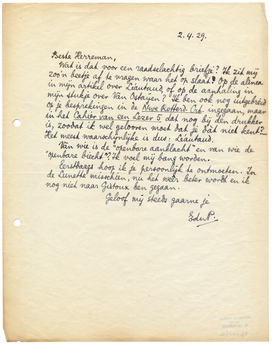 2.4.29.
Beste Herreman,
Wat is dat voor een raadselachtig briefje? Ik zit mij
zoo'n beetje af te vragen waar het op slaat? Op de alinea
in mijn artikel over Léautaud, of op de aanhaling in
mijn stukje over Van Ostaijen? Ik ben ook nog uitgebreid
op je bespreking in de Nwe Rott. Crt. ingegaan, maar
in het Cahier van een Lezer 5, dat nog bij den drukker
is, zoodat ik wel gelooven moet dat je dat niet kent?
Het meest waarschijnlijke is dus: Léautaud.
Van wie is de "openbare aanklacht" en van wie de
"openbare biecht"? Ik voel mij bang worden.
Eerstdaags hoop ik je persoonlijk te ontmoeten. In
de Lunette misschien, nu het weer beter wordt en ik
nog niet naar Gistoux ben gegaan.
Geloof mij steeds gaarne je
EduP.